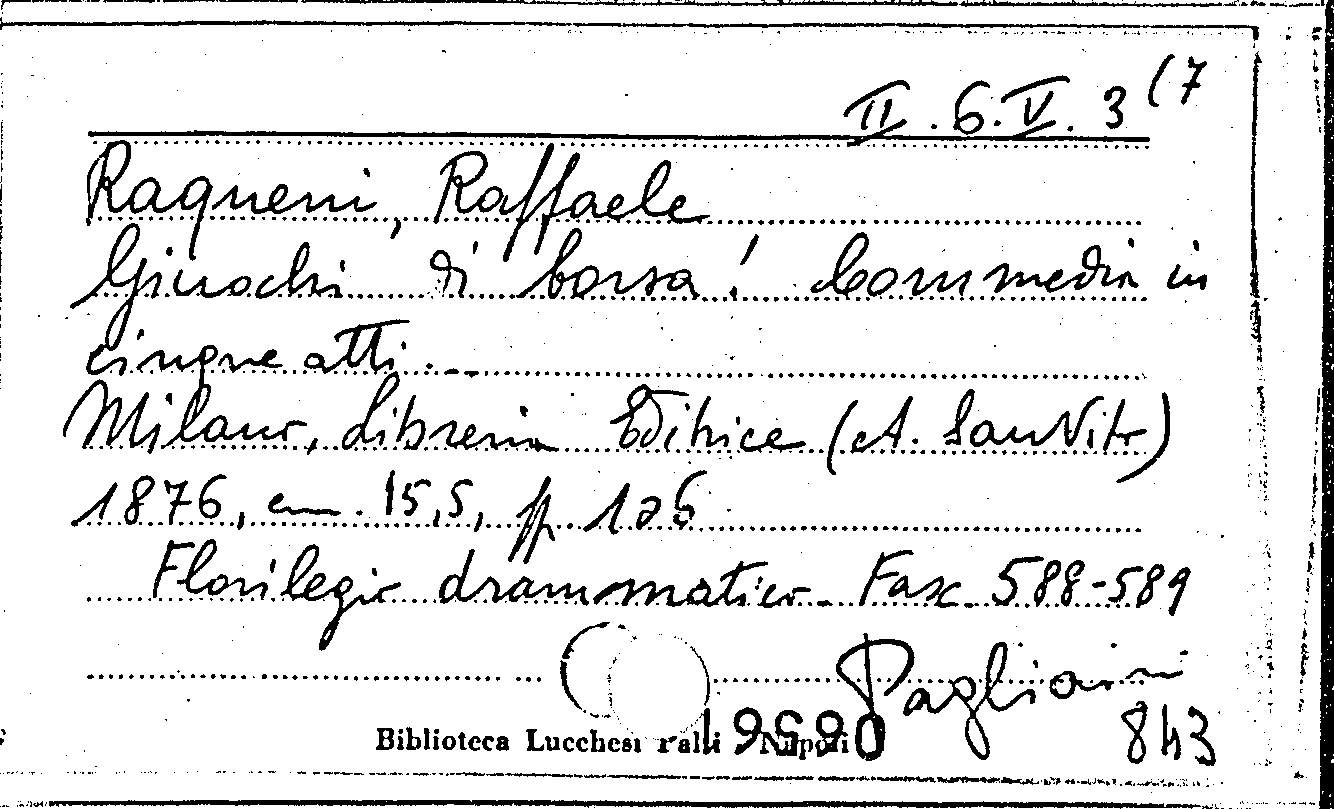 II. 6. V. 3 (7
Raqueni, Raffaele
Giuochi di borsa! Commedia in
cinque atti. _
Milano, Libreria Editrice (A. San Vito)
1876, cm. 15,5, pp. 126
Florilegio drammatico. Fasc. 588-589
Pagliaini
843
Biblioteca Lucchesi Palli Napoli